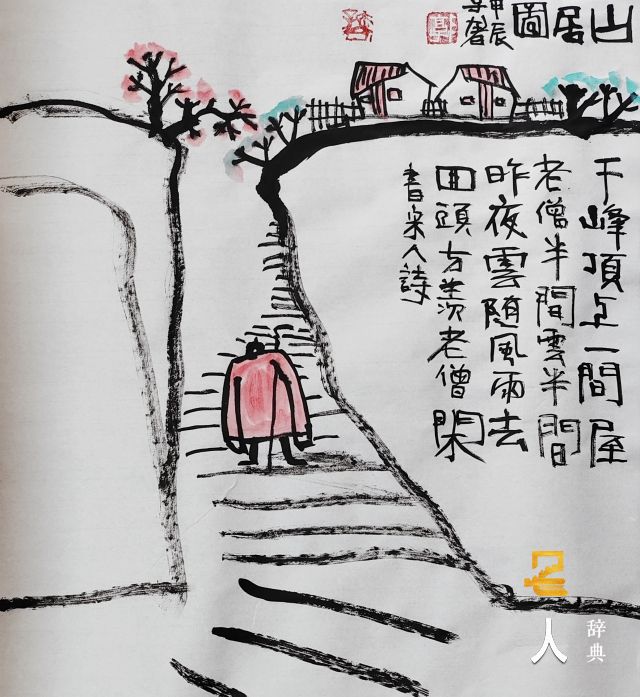 山居圖
甲辰
千峰頂上一間屋
老僧半間雲半間
昨夜雲随風雨去
回頭方羡老僧閑
書宋人詩
名人
辞典